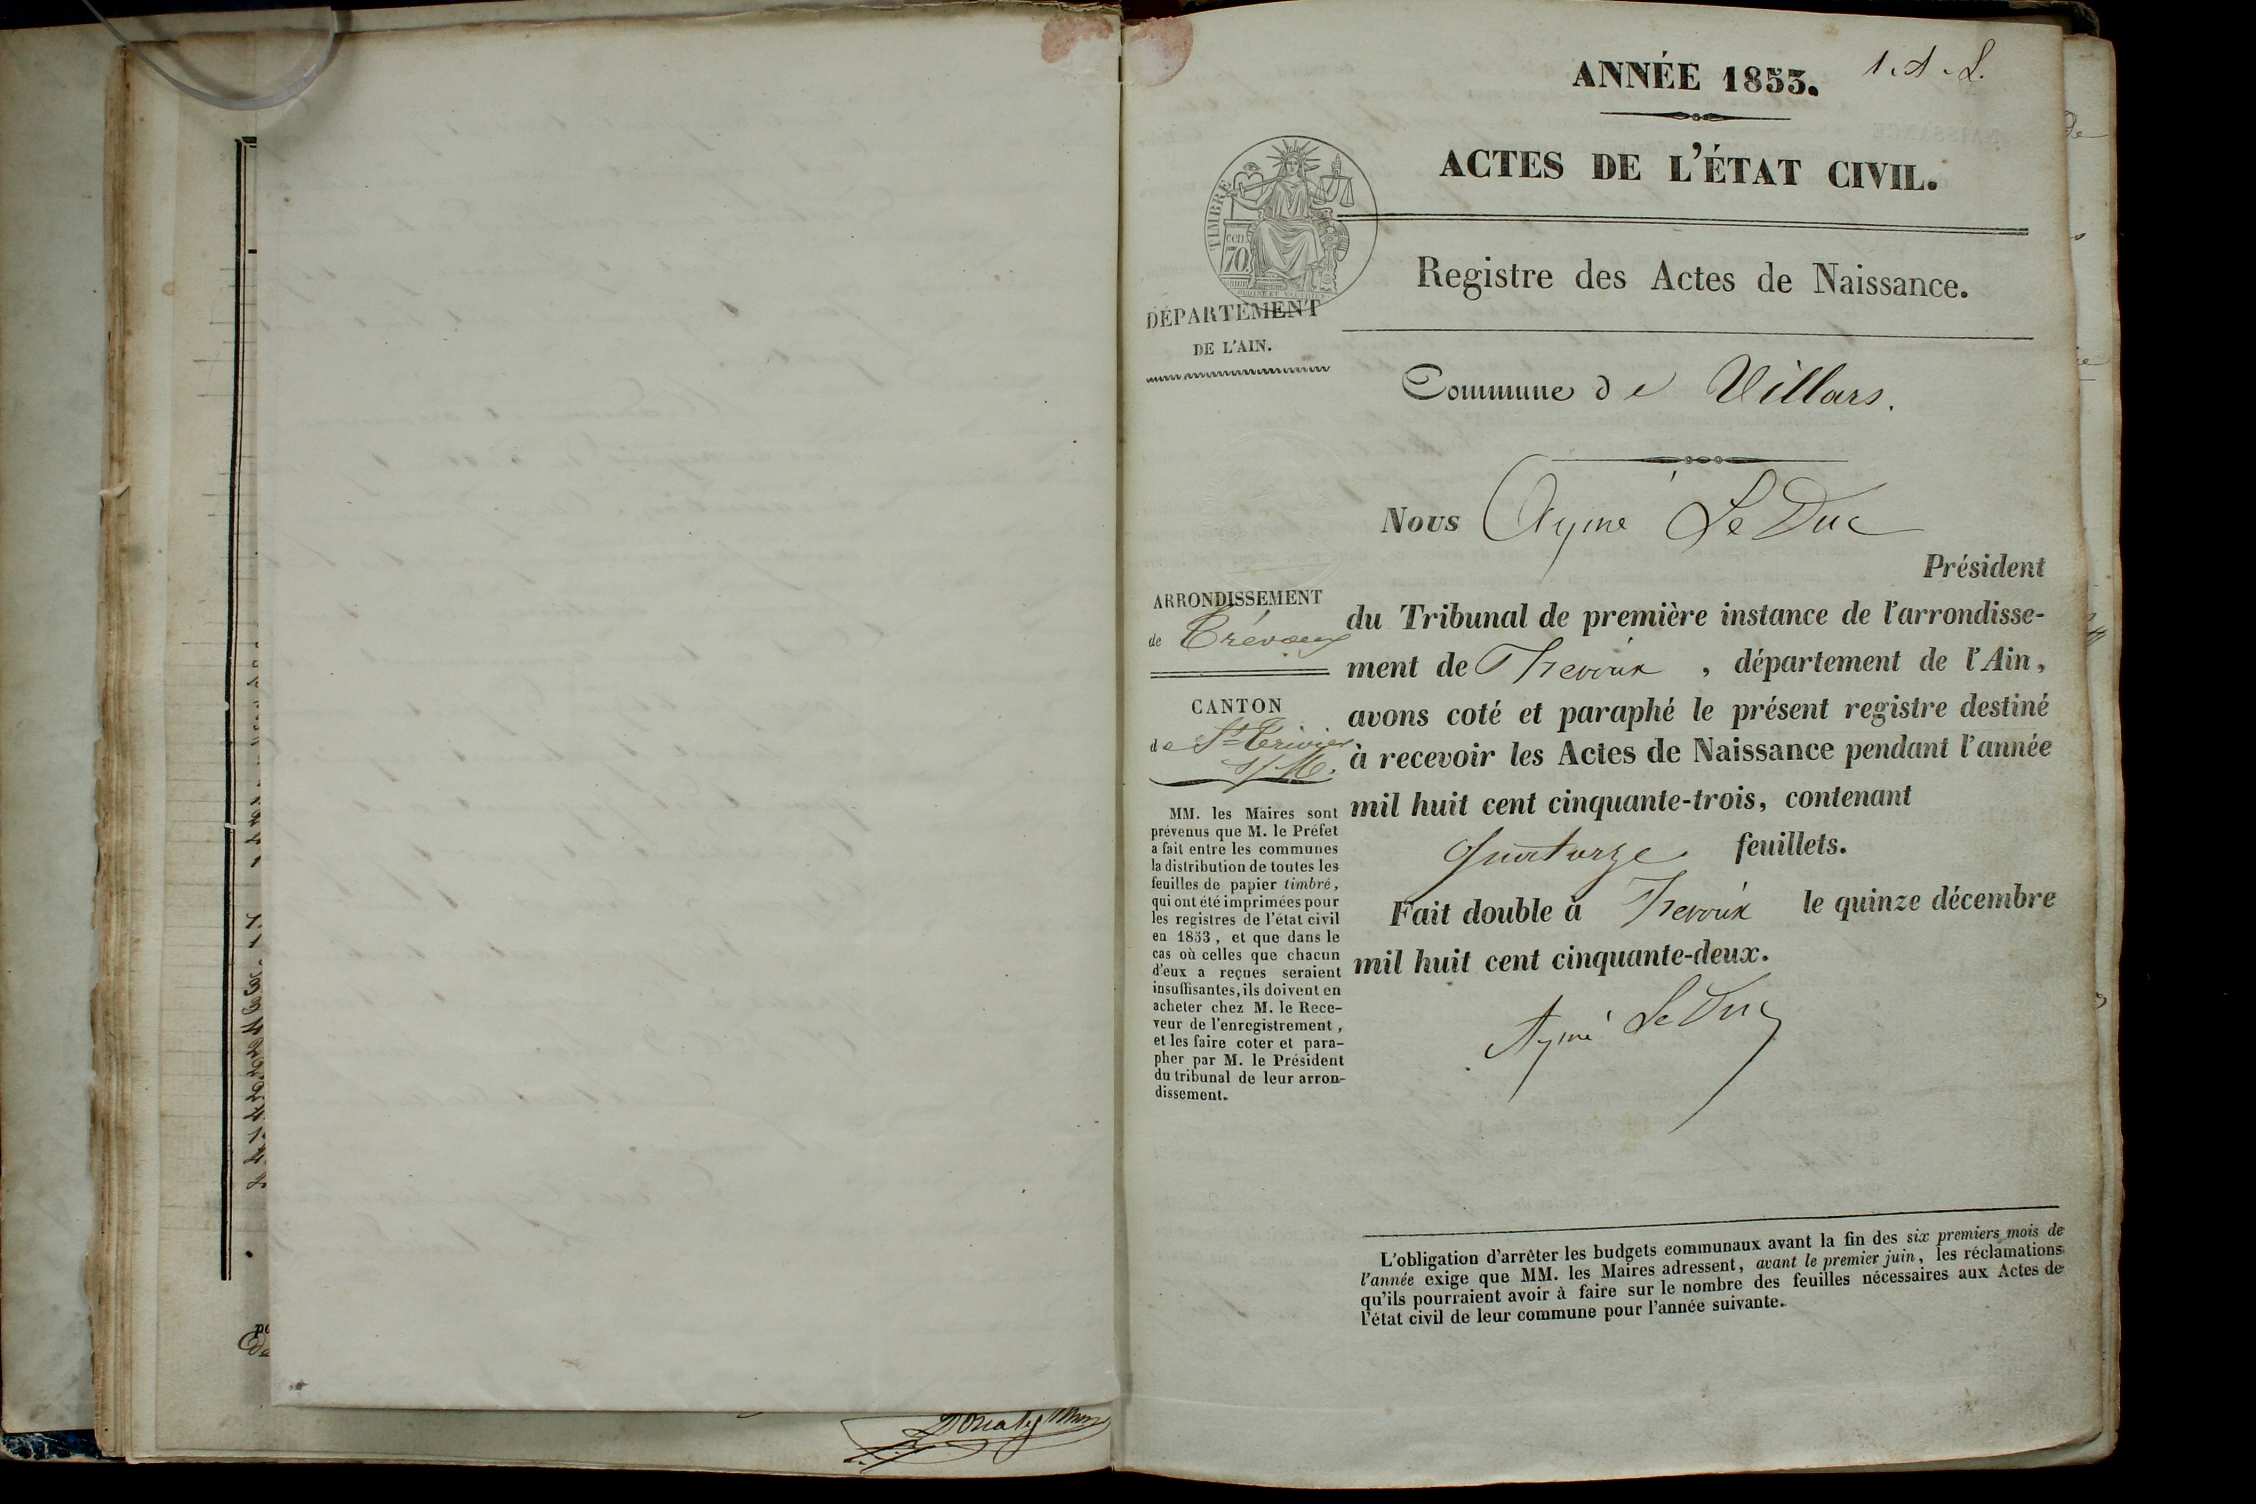 ANNÉE 1853.
1. A. L.
ACTES DE L'ÉTAT CIVIL.
TIMBRE
cen
70
DÉPARTEMENT
DE L'AIN.
Registre des Actes de Naissance.
Commune de Villars.
Nous Aymé Le Duc
Président
du Tribunal de première instance de l'arrondisse-
ment de Trevoux , département de l'Ain,
avons coté et paraphé le présent registre destiné
à recevoir les Actes de Naissance pendant l'année
mil huit cent cinquante-trois, contenant
quatorze feuillets.
Fait double à Trevoux le quinze décembre
mil huit cent cinquante-deux.
Aymé Le Duc
ARRONDISSEMENT
de Trévoux
CANTON
de St Trivier
s/ M.
MM. les Maires sont
prévenus que M. le Préfet
a fait entre les communes
la distribution de toutes les
feuilles de papier timbré,
qui ont été imprimées pour
les registres de l'état civil
en 1853, et que dans le
cas où celles que chacun
d'eux a reçues seraient
insuffisantes, ils doivent en
acheter chez M. le Rece-
veur de l'enregistrement,
et les faire coter et para-
pher par M. le Président
du tribunal de leur arron-
dissement.
L'obligation d'arrêter les budgets communaux avant la fin des six premiers mois de
l'année exige que MM. les Maires adressent, avant le premier juin, les réclamations
qu'ils pourraient avoir à faire sur le nombre des feuilles nécessaires aux Actes de
l'état civil de leur commune pour l'année suivante.